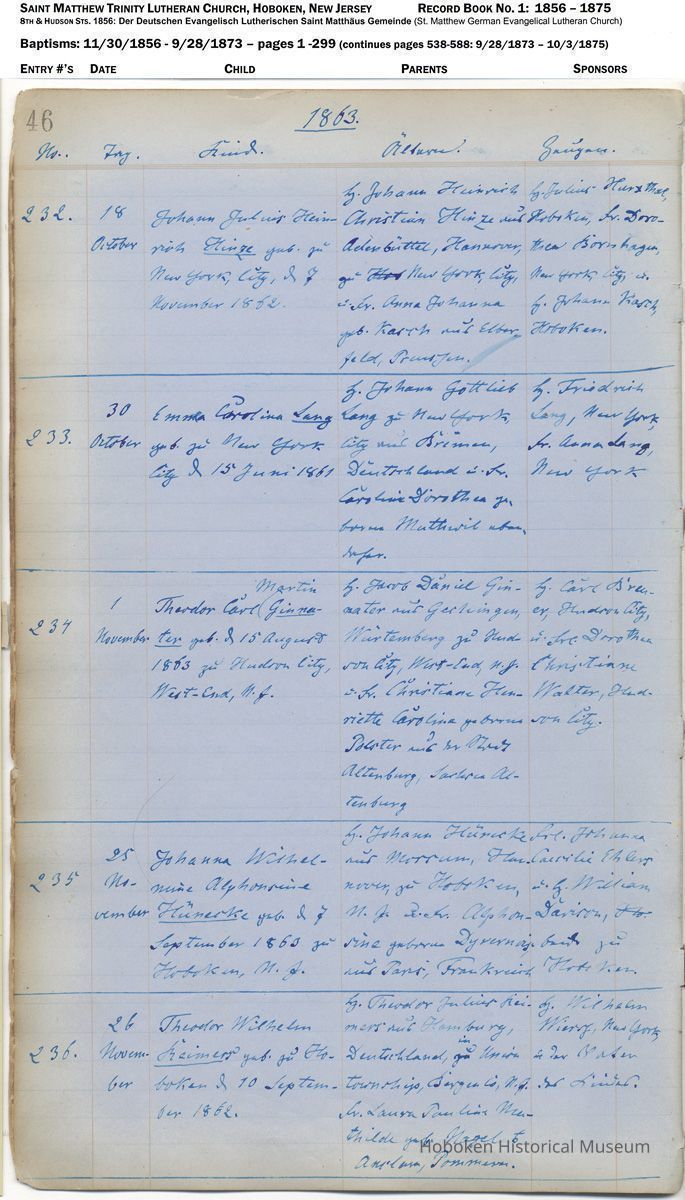 SAINT MATTHEW TRINITY LUTHERAN CHURCH, HOBOKEN, NEW JERSEY RECORD BOOK NO. 1: 1856 – 1875
8TH & HUDSON STS. 1856: Der Deutschen Evangelisch Lutherischen Saint Matthäus Gemeinde (St. Matthew German Evangelical Lutheran Church)
Baptisms: 11/30/1856 - 9/28/1873 – pages 1 -299 (continues pages 538-588: 9/28/1873 – 10/3/1875)
ENTRY #'S DATE CHILD PARENTS SPONSORS
46
1863.
No. Tag. Kind. Ältern. Zeugen.
232.
18
October
Johann Julius Hein-
rich Hinze geb. zu
New York, City, d. 7
November 1862.
H. Johann Heinrich
Christian Hinze aus
Hannover,
zu New York, City,
u. Fr. Anna Johanna
geb. Kasch aus Elber-
feld, Preussen.
H. Julius
Hoboken, Fr. Doro-
thea Bornhagen,
New York City, u.
H. Johann Kasch,
Hoboken.
233.
30
October
Emma Carolina Lang
geb. zu New York
City d. 15 Juni 1861
H. Johann Gottlieb
Lang zu New York,
City aus Bremen,
Deutschland u. Fr.
Caroline Dorothea ge-
borne Muthwil eben
daher.
H. Friedrich
Lang, New York,
Fr. Anna Lang,
New York
234
1
November
Martin
Theodor Carl Ginna-
ter geb. d. 15 August
1863 zu Hudson City,
West-End, N. J.
H. Jacob Daniel Gin-
nater aus Gechingen,
Würtemberg zu Hud-
son City, West-End, N. J.
u. Fr. Christiane Hen-
riette Carolina geborne
Polster aus der Stadt
Altenburg, Sachsen Al-
tenburg
H. Carl Bren-
er, Hudson City,
u. Frl. Dorothea
Christiane
Walter, Hud-
son City.
235
25
No-
vember
Johanna Wilhel-
mine Alphonsine
Hünecke geb. d. 7
September 1863 zu
Hoboken, N. J.
H. Johann Hünecke
aus Morsum, Han-
nover, zu Hoboken,
N. J. u. Fr. Alphon-
sine geborne
aus Paris, Frankreich
Frl. Johanna
Caecilie Ehlers
u. H. William
Davison,
beide zu
Hoboken.
236.
26
Novem-
ber
Theodor Wilhelm
Reimers geb. zu Ho-
boken d. 10 Septem-
ber 1862.
H. Theodor Julius Rei-
mers aus Hamburg,
Deutschland, in Union
township, Bergen Co, N. J.
Fr. Laura Pauline Ma-
thilde geb.
Anclam, Pommern.
H. Wilhelm
New York
u. der Vater
des Kindes.
Hoboken Historical Museum